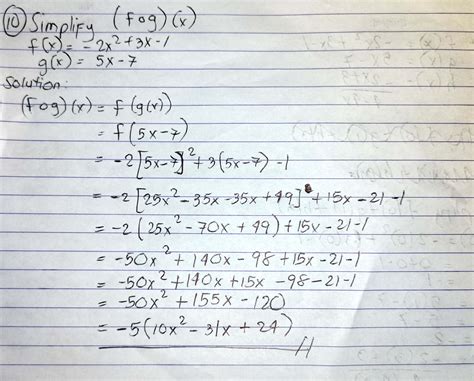 ⑩ Simplify (fog)(x)
f(x) = -2x² + 3x - 1
g(x) = 5x - 7
Solution:
(fog)(x) = f(g(x))
= f(5x-7)
= -2[5x-7]² + 3(5x-7) - 1
= -2[25x² - 35x - 35x + 49] + 15x - 21 - 1
= -2(25x² - 70x + 49) + 15x - 21 - 1
= -50x² + 140x - 98 + 15x - 21 - 1
= -50x² + 140x + 15x - 98 - 21 - 1
= -50x² + 155x - 120
= -5(10x² - 31x + 24)